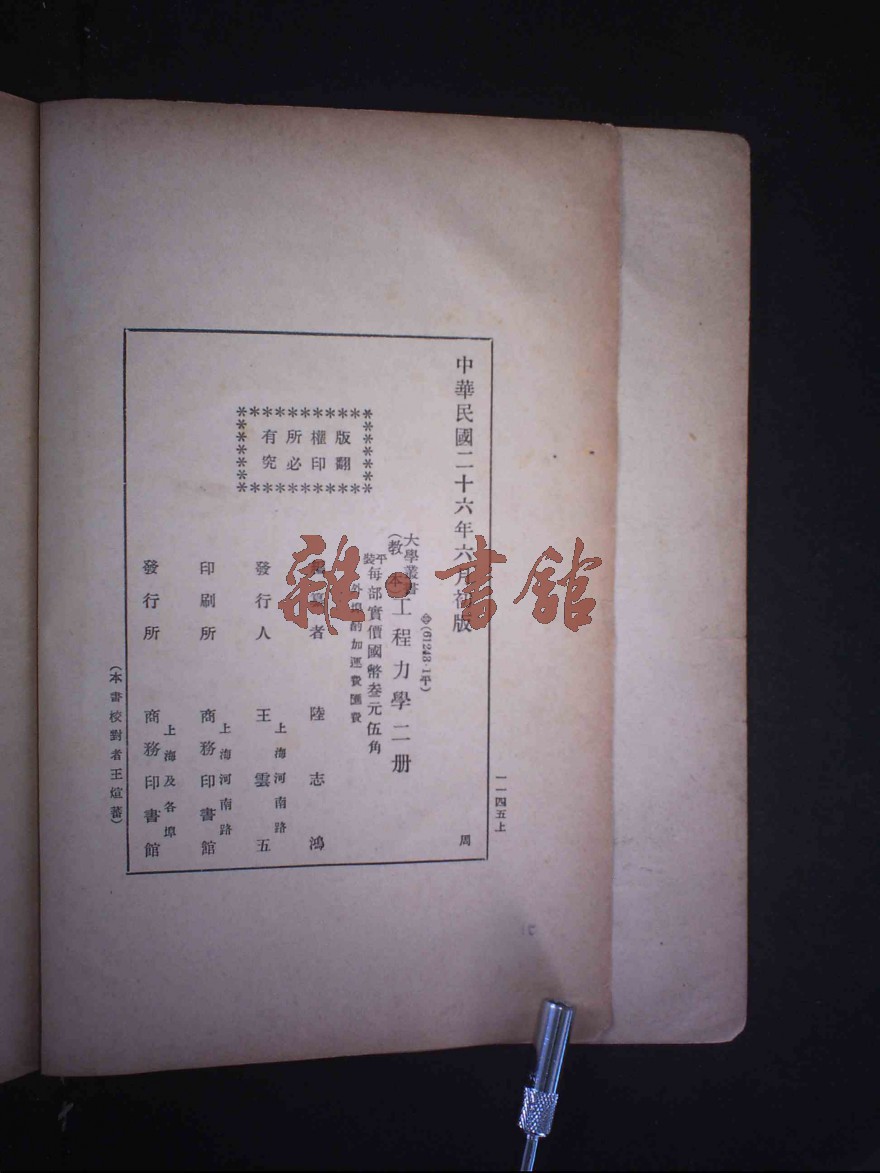 中華民國二十六年六月初版
一一四五上
周
(61243·1平)
大學叢書
(教本)
工程力學二册
平裝每部實價國幣叁元伍角
外埠酌加運費匯費
版權所有
翻印必究
者 陸志鴻
發行人 王雲五
上海河南路
印刷所 商務印書館
上海河南路
發行所 商務印書館
上海及各埠
(本書校對者王煊蕃)
雜·書館